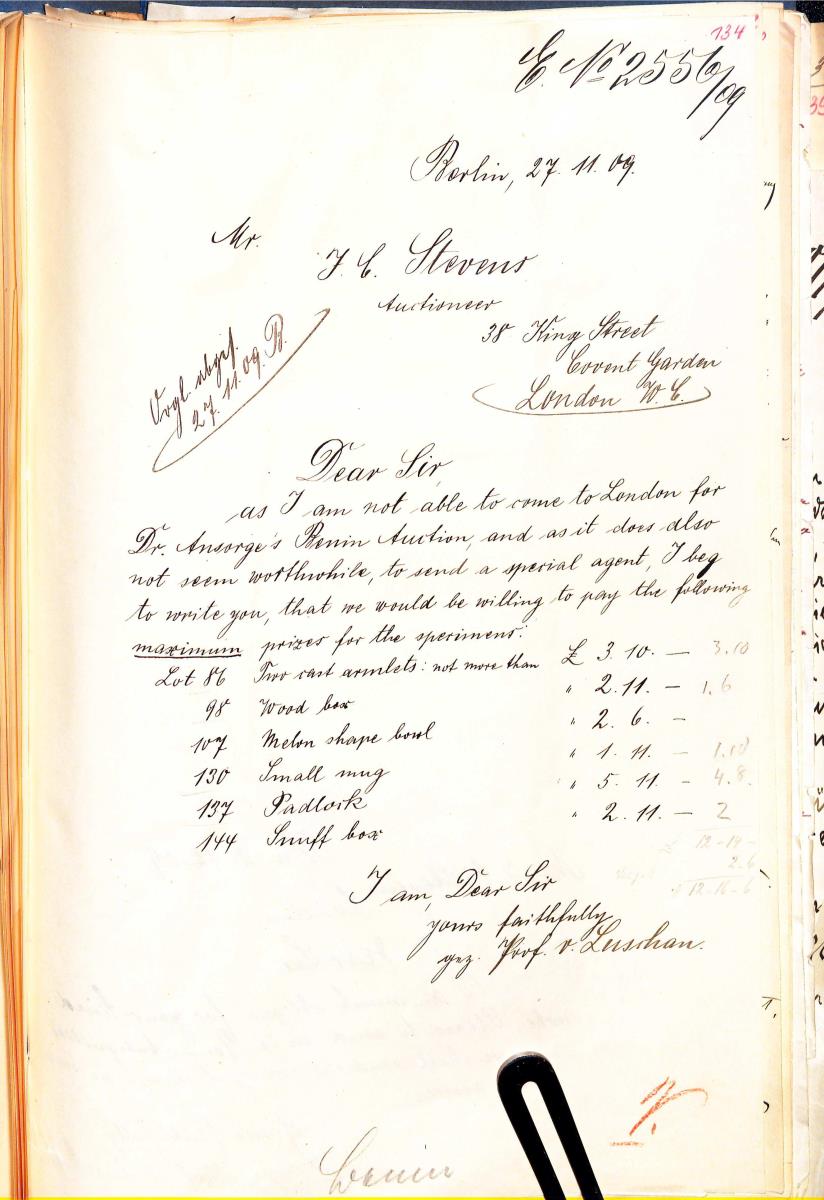 134
E. No 2556/09
Berlin, 27. 11. 09.
Mr.
J. C. Stevens
Auctioneer
38 King Street
Covent Garden
London W. C.
Orgl. abges.
27. 11. 09. B.
Dear Sir,
as I am not able to come to London for
Dr. Ansorge's Benin Auction, and as it does also
not seem worthwhile, to send a special agent, I beg
to write you, that we would be willing to pay the following
maximum prizes for the specimens:
Lot 86 Two cast armlets: not more than £ 3. 10. — 3.10
98 Wood box " 2. 11. — 1.6
107 Melon shape bowl " 2. 6. —
130 Small mug " 1. 11. — 1.10
137 Padlock " 5. 11. — 4.8.
144 Snuff box " 2. 11. — 2
£ 12-14-
2.6
£ 12-16-6
I am, Dear Sir
yours faithfully
gez. Prof. v. Luschan.
Benin